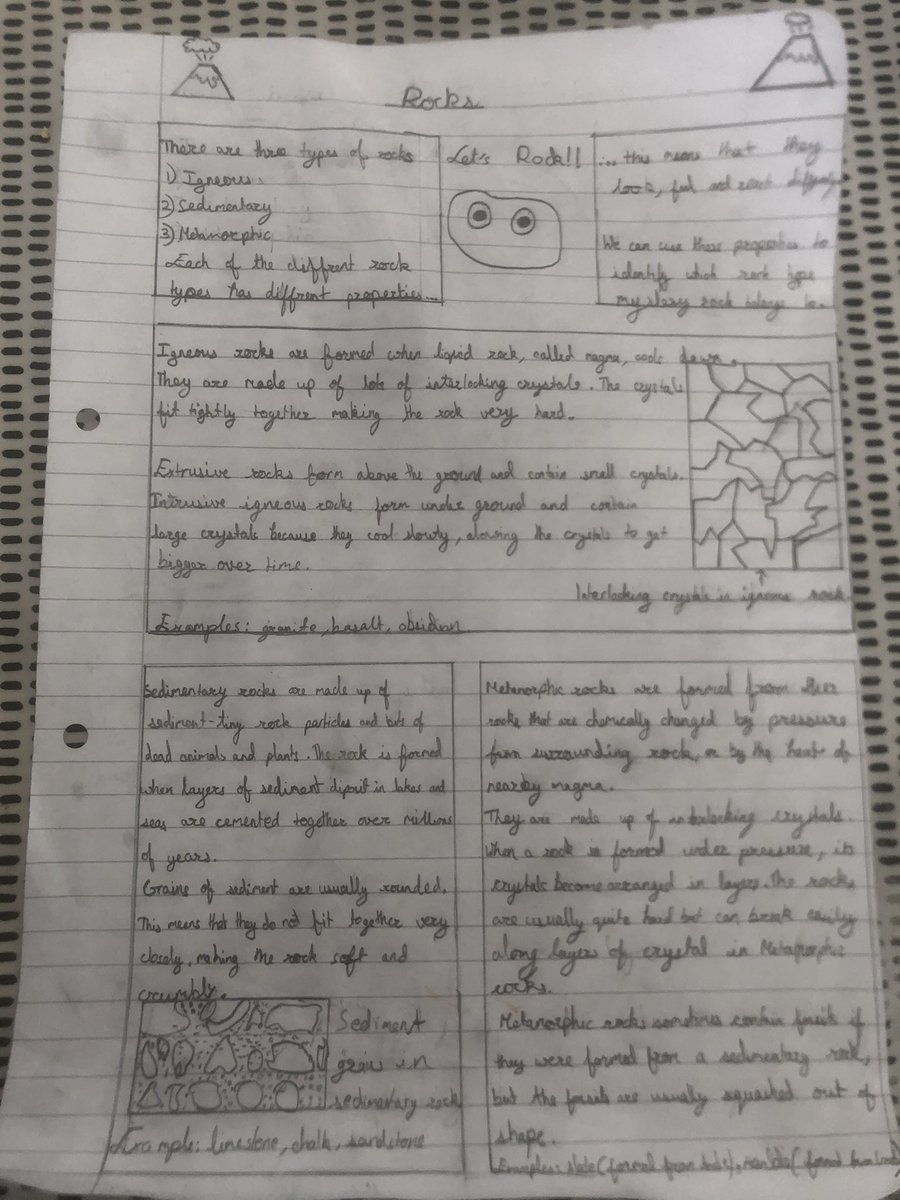 Rocks
There are three types of rocks
1) Igneous.
2) Sedimentary
3) Metamorphic
Each of the diffrent rock
types has diffrent properties...
Let's Rock!!
...this means that they
look, feel and react
We can use these properties to
identify which rock type
mystery rock belongs to.
Igneous rocks are formed when liquid rock, called magma, cools down.
They are made up of lots of interlocking crystals. The crystals
fit tightly together making the rock very hard.
Extrusive rocks form above the ground and contain small crystals.
Intrusive igneous rocks form under ground and contain
large crystals because they cool slowly, alowing the crystals to get
bigger over time.
Interlocking crystals in igneous rock
Examples: granite, basalt, obsidian
Sedimentary rocks are made up of
sediment-tiny rock particles and bits of
dead animals and plants. The rock is formed
when layers of sediment in lakes and
seas are cemented together over millions
of years.
Grains of sediment are usually rounded.
This means that they do not fit together very
closely, making the rock soft and
crumbly.
Sediment
grais in
sedimentary rock
Example: limestone, chalk, sandstone
Metamorphic rocks are formed from
rocks that are chemically changed by pressure
from surrounding rock, or by the heat of
nearby magma.
They are made up of interlocking crystals.
When a rock is formed under pressure, its
crystals become arranged in layers. The rocks
are usually quite hard but can break easily
along layers of crystal in Metamorphic
rocks.
Metamorphic rocks sometimes contain fossils if
they were formed from a sedimentary rock,
but the fossils are usually squashed out of
shape.
Examples: slate (formed from